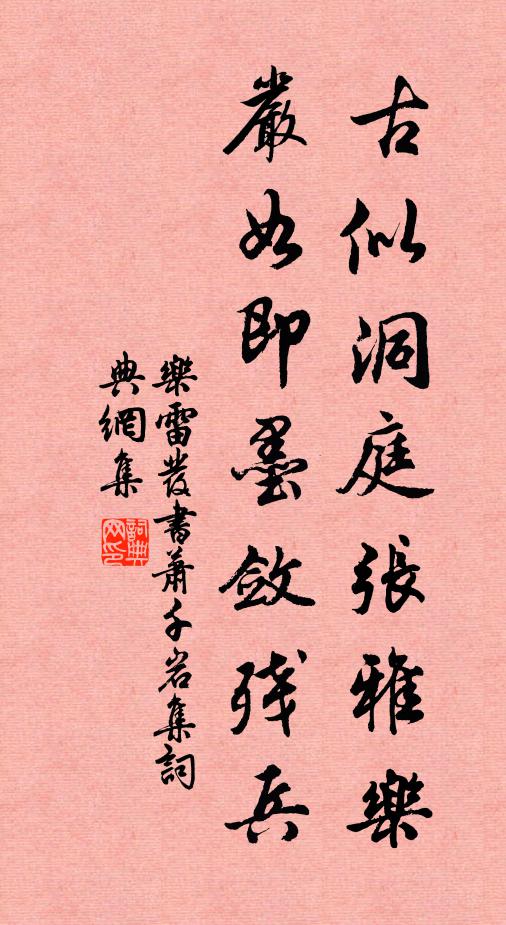 古似洞庭張雅樂
嚴如即墨斂殘兵
樂雷發書蕭千岩集詞
典網集
詞典网印